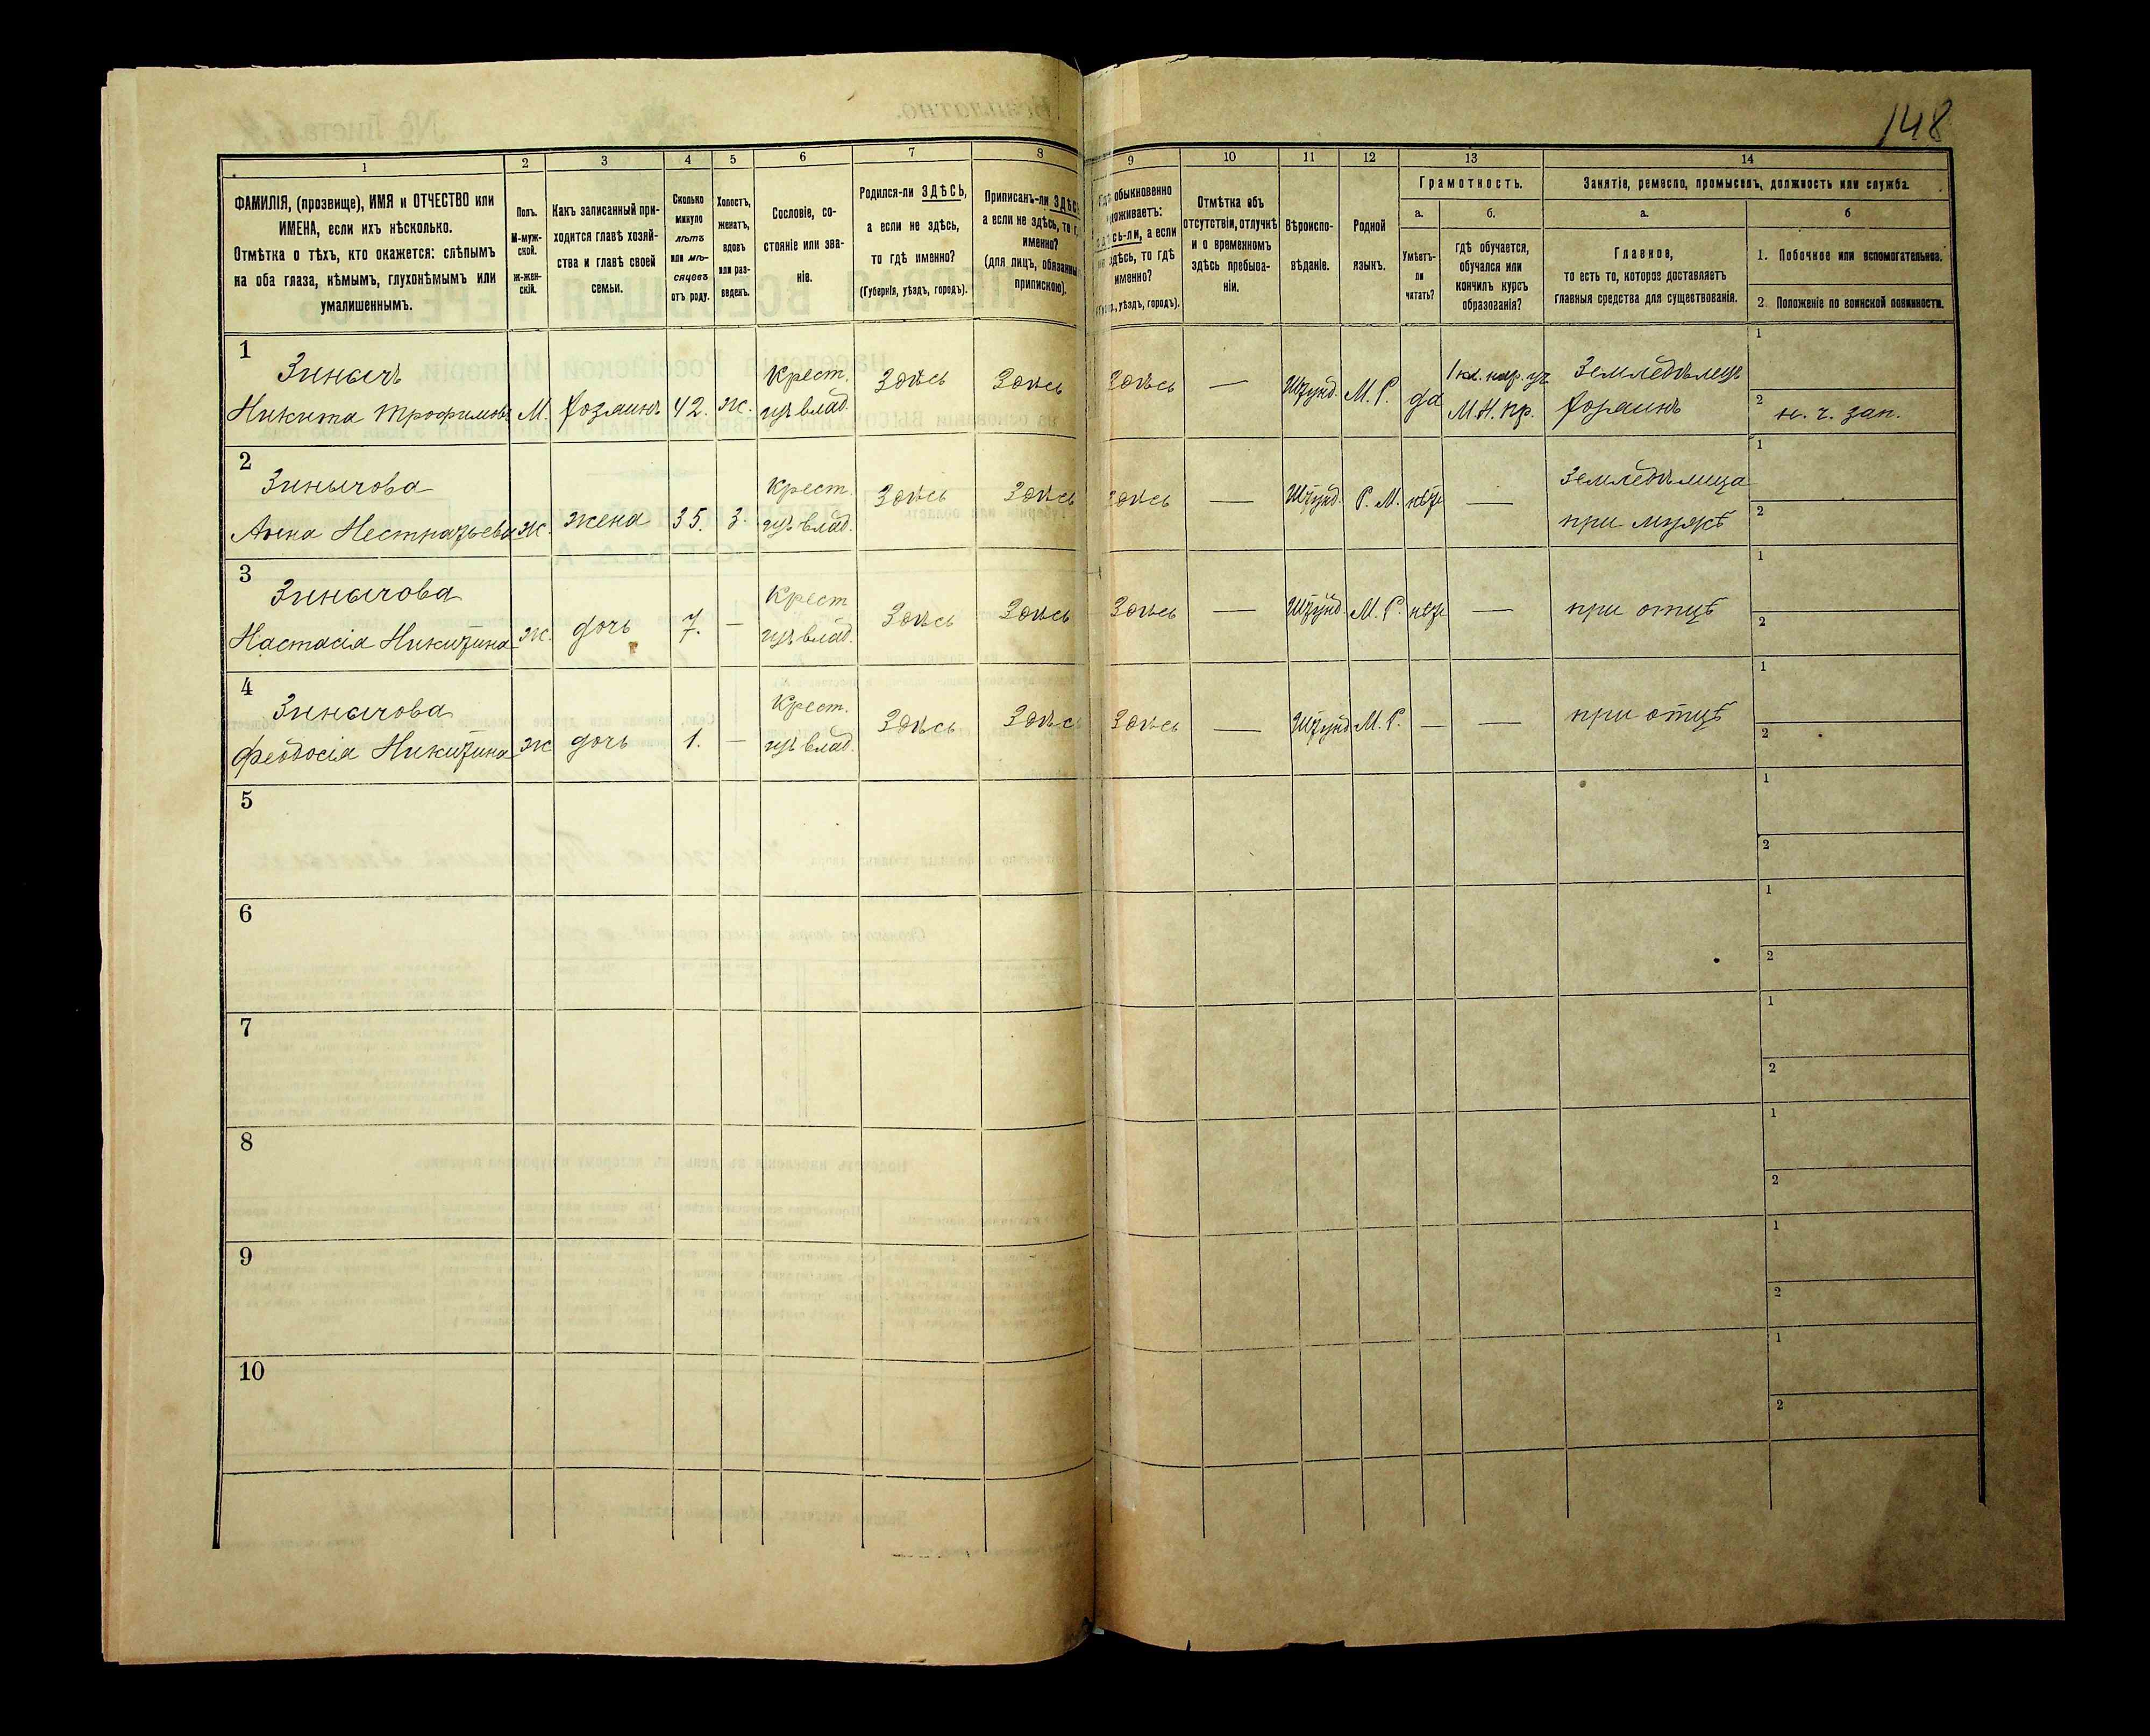 148
1 2 3 4 5 6 7 8 9 10 11 12 13 14
ФАМИЛІЯ, (прозвище), ИМЯ и ОТЧЕСТВО или
ИМЕНА, если ихъ нѣсколько.
Отмѣтка о тѣхъ, кто окажется: слѣпымъ
на оба глаза, нѣмымъ, глухонѣмымъ или
умалишеннымъ.
Полъ.
М-муж-
ской.
Ж-жен-
скій.
Какъ записанный при-
ходится главѣ хозяй-
ства и главѣ своей
семьи.
Сколько
минуло
лѣтъ
или мѣ-
сяцевъ
отъ роду.
Холостъ,
женатъ,
вдовъ
или раз-
веденъ.
Сословіе, со-
стояніе или зва-
ніе.
Родился-ли ЗДѢСЬ,
а если не здѣсь,
то гдѣ именно?
(Губернія, уѣздъ, городъ).
Приписанъ-ли ЗДѢСЬ
а если не здѣсь, то г
именно?
(для лицъ, обязанны
припискою).
Гдѣ обыкновенно
проживаетъ:
здѣсь-ли, а если
не здѣсь, то гдѣ
именно?
(Губ., уѣздъ, городъ).
Отмѣтка объ
отсутствіи, отлучкѣ
и о временномъ
здѣсь пребыва-
ніи.
Вѣроиспо-
вѣданіе.
Родной
языкъ.
Грамотность.
а.
Умѣетъ-
ли
читать?
б.
гдѣ обучается,
обучался или
кончилъ курсъ
образованія?
Занятія, ремесло, промыселъ, должность или служба.
а.
Главное,
то есть то, которое доставляетъ
главныя средства для существованія.
б
1. Побочное или вспомогательное.
2. Положеніе по воинской повинности.
1
Зинычъ Крест. Здѣсь Здѣсь Здѣсь — Штунд. М. Р. 1 кл. нар. уч. Земледѣлецъ 1
Никита Трофимовъ М. хозяинъ 42. ж. изъ влад. да М. Н. Пр. хозяинъ 2 н. ч. зап.
2
Зинычова Крест. Здѣсь Здѣсь Здѣсь — Штунд. Р. М. нѣтъ — Земледѣлица 1
Анна ж. жена 35. З. изъ влад. при мужѣ 2
3
Зинычова Крест Здѣсь Здѣсь Здѣсь — Штунд. М. Р. нѣтъ — при отцѣ 1
Настасія Никитина ж. дочь 7. — изъ влад. 2
4
Зинычова Крест. Здѣсь Здѣсь Здѣсь — Штунд М. Р. — — при отцѣ 1
Феодосія Никитина ж дочь 1. — изъ влад. 2
5 1
2
6 1
2
7 1
2
8 1
2
9 1
2
10 1
2